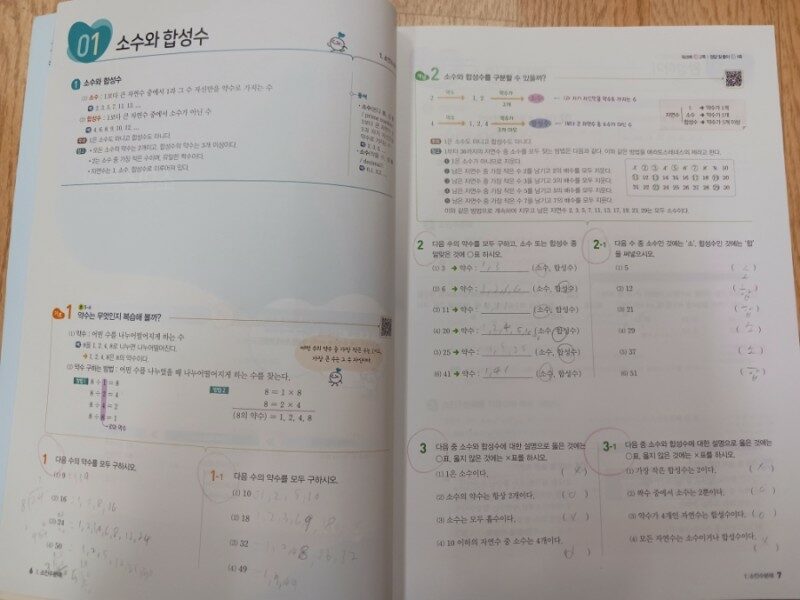 01 소수와 합성수
1 소수와 합성수
(1) 소수 : 1보다 큰 자연수 중에서 1과 그 수 자신만을 약수로 가지는 수
2, 3, 5, 7, 11, 13, …
(2) 합성수 : 1보다 큰 자연수 중에서 소수가 아닌 수
4, 6, 8, 9, 10, 12, …
1은 소수도 아니고 합성수도 아니다.
• 모든 소수의 약수는 2개이고, 합성수의 약수는 3개 이상이다.
• 2는 소수 중 가장 작은 수이며, 유일한 짝수이다.
• 자연수는 1, 소수, 합성수로 이루어져 있다.
용어
1 약수는 무엇인지 복습해 볼까?
(1) 약수 : 어떤 수를 나누어떨어지게 하는 수
8을 1, 2, 4, 8로 나누면 나누어떨어진다.
➔ 1, 2, 4, 8은 8의 약수이다.
(2) 약수 구하는 방법 : 어떤 수를 나누었을 때 나누어떨어지게 하는 수를 찾는다.
방법1 8÷1=8
8÷2=4
8÷4=2
8÷8=1
8의 약수
방법2 8=1×8
8=2×4
(8의 약수)=1, 2, 4, 8
어떤 수의 약수 중 가장 작은 수는 1이고,
가장 큰 수는 그 수 자신이야.
1 다음 수의 약수를 모두 구하시오.
(1) 9
(2) 16
(3) 24
(4) 50
1-1 다음 수의 약수를 모두 구하시오.
(1) 10
(2) 18
(3) 32
(4) 49
6 Ⅰ. 소인수분해
2 소수와 합성수를 구분할 수 있을까?
2 약수 1, 2 약수가 2개 소수
4 약수 1, 2, 4 약수가 3개 이상 합성수
자연수 1 ➔ 약수가 1개
소수 ➔ 약수가 2개
합성수 ➔ 약수가 3개 이상
1은 소수도 아니고 합성수도 아니다.
1부터 30까지의 자연수 중 소수를 모두 찾는 방법은 다음과 같다. 이와 같은 방법을 에라토스테네스의 체라고 한다.
❶ 1은 소수가 아니므로 지운다.
❷ 남은 자연수 중 가장 작은 수 2를 남기고 2의 배수를 모두 지운다.
❸ 남은 자연수 중 가장 작은 수 3을 남기고 3의 배수를 모두 지운다.
❹ 남은 자연수 중 가장 작은 수 5를 남기고 5의 배수를 모두 지운다.
❺ 남은 자연수 중 가장 작은 수 7을 남기고 7의 배수를 모두 지운다.
이와 같은 방법으로 계속하여 지우고 남은 자연수 2, 3, 5, 7, 11, 13, 17, 19, 23, 29는 모두 소수이다.
1 2 3 4 5 6 7 8 9 10
11 12 13 14 15 16 17 18 19 20
21 22 23 24 25 26 27 28 29 30
2 다음 수의 약수를 모두 구하고, 소수 또는 합성수 중
알맞은 것에 ○표 하시오.
(1) 3 ➔ 약수 : 1, 3 (소수, 합성수)
(2) 6 ➔ 약수 : (소수, 합성수)
(3) 11 ➔ 약수 : (소수, 합성수)
(4) 20 ➔ 약수 : (소수, 합성수)
(5) 25 ➔ 약수 : (소수, 합성수)
(6) 41 ➔ 약수 : 1, 41 (소수, 합성수)
2-1 다음 수 중 소수인 것에는 '소', 합성수인 것에는 '합'
을 써넣으시오.
(1) 5 (소)
(2) 12 (합)
(3) 21 (합)
(4) 29 (소)
(5) 37 (소)
(6) 51 (합)
3 다음 중 소수와 합성수에 대한 설명으로 옳은 것에는
○표, 옳지 않은 것에는 ×표를 하시오.
(1) 1은 소수이다. (×)
(2) 소수의 약수는 항상 2개이다. (○)
(3) 소수는 모두 홀수이다. (×)
(4) 10 이하의 자연수 중 소수는 4개이다. (○)
3-1 다음 중 소수와 합성수에 대한 설명으로 옳은 것에는
○표, 옳지 않은 것에는 ×표를 하시오.
(1) 가장 작은 합성수는 2이다. (×)
(2) 짝수 중에서 소수는 2뿐이다. (○)
(3) 약수가 4개인 자연수는 합성수이다. (○)
(4) 모든 자연수는 소수이거나 합성수이다. (×)
Ⅰ. 소인수분해 7